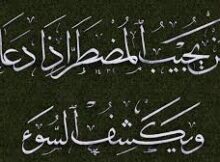 يجيب ٱلمضطر إذا دعا
ويكشف ٱلسوء